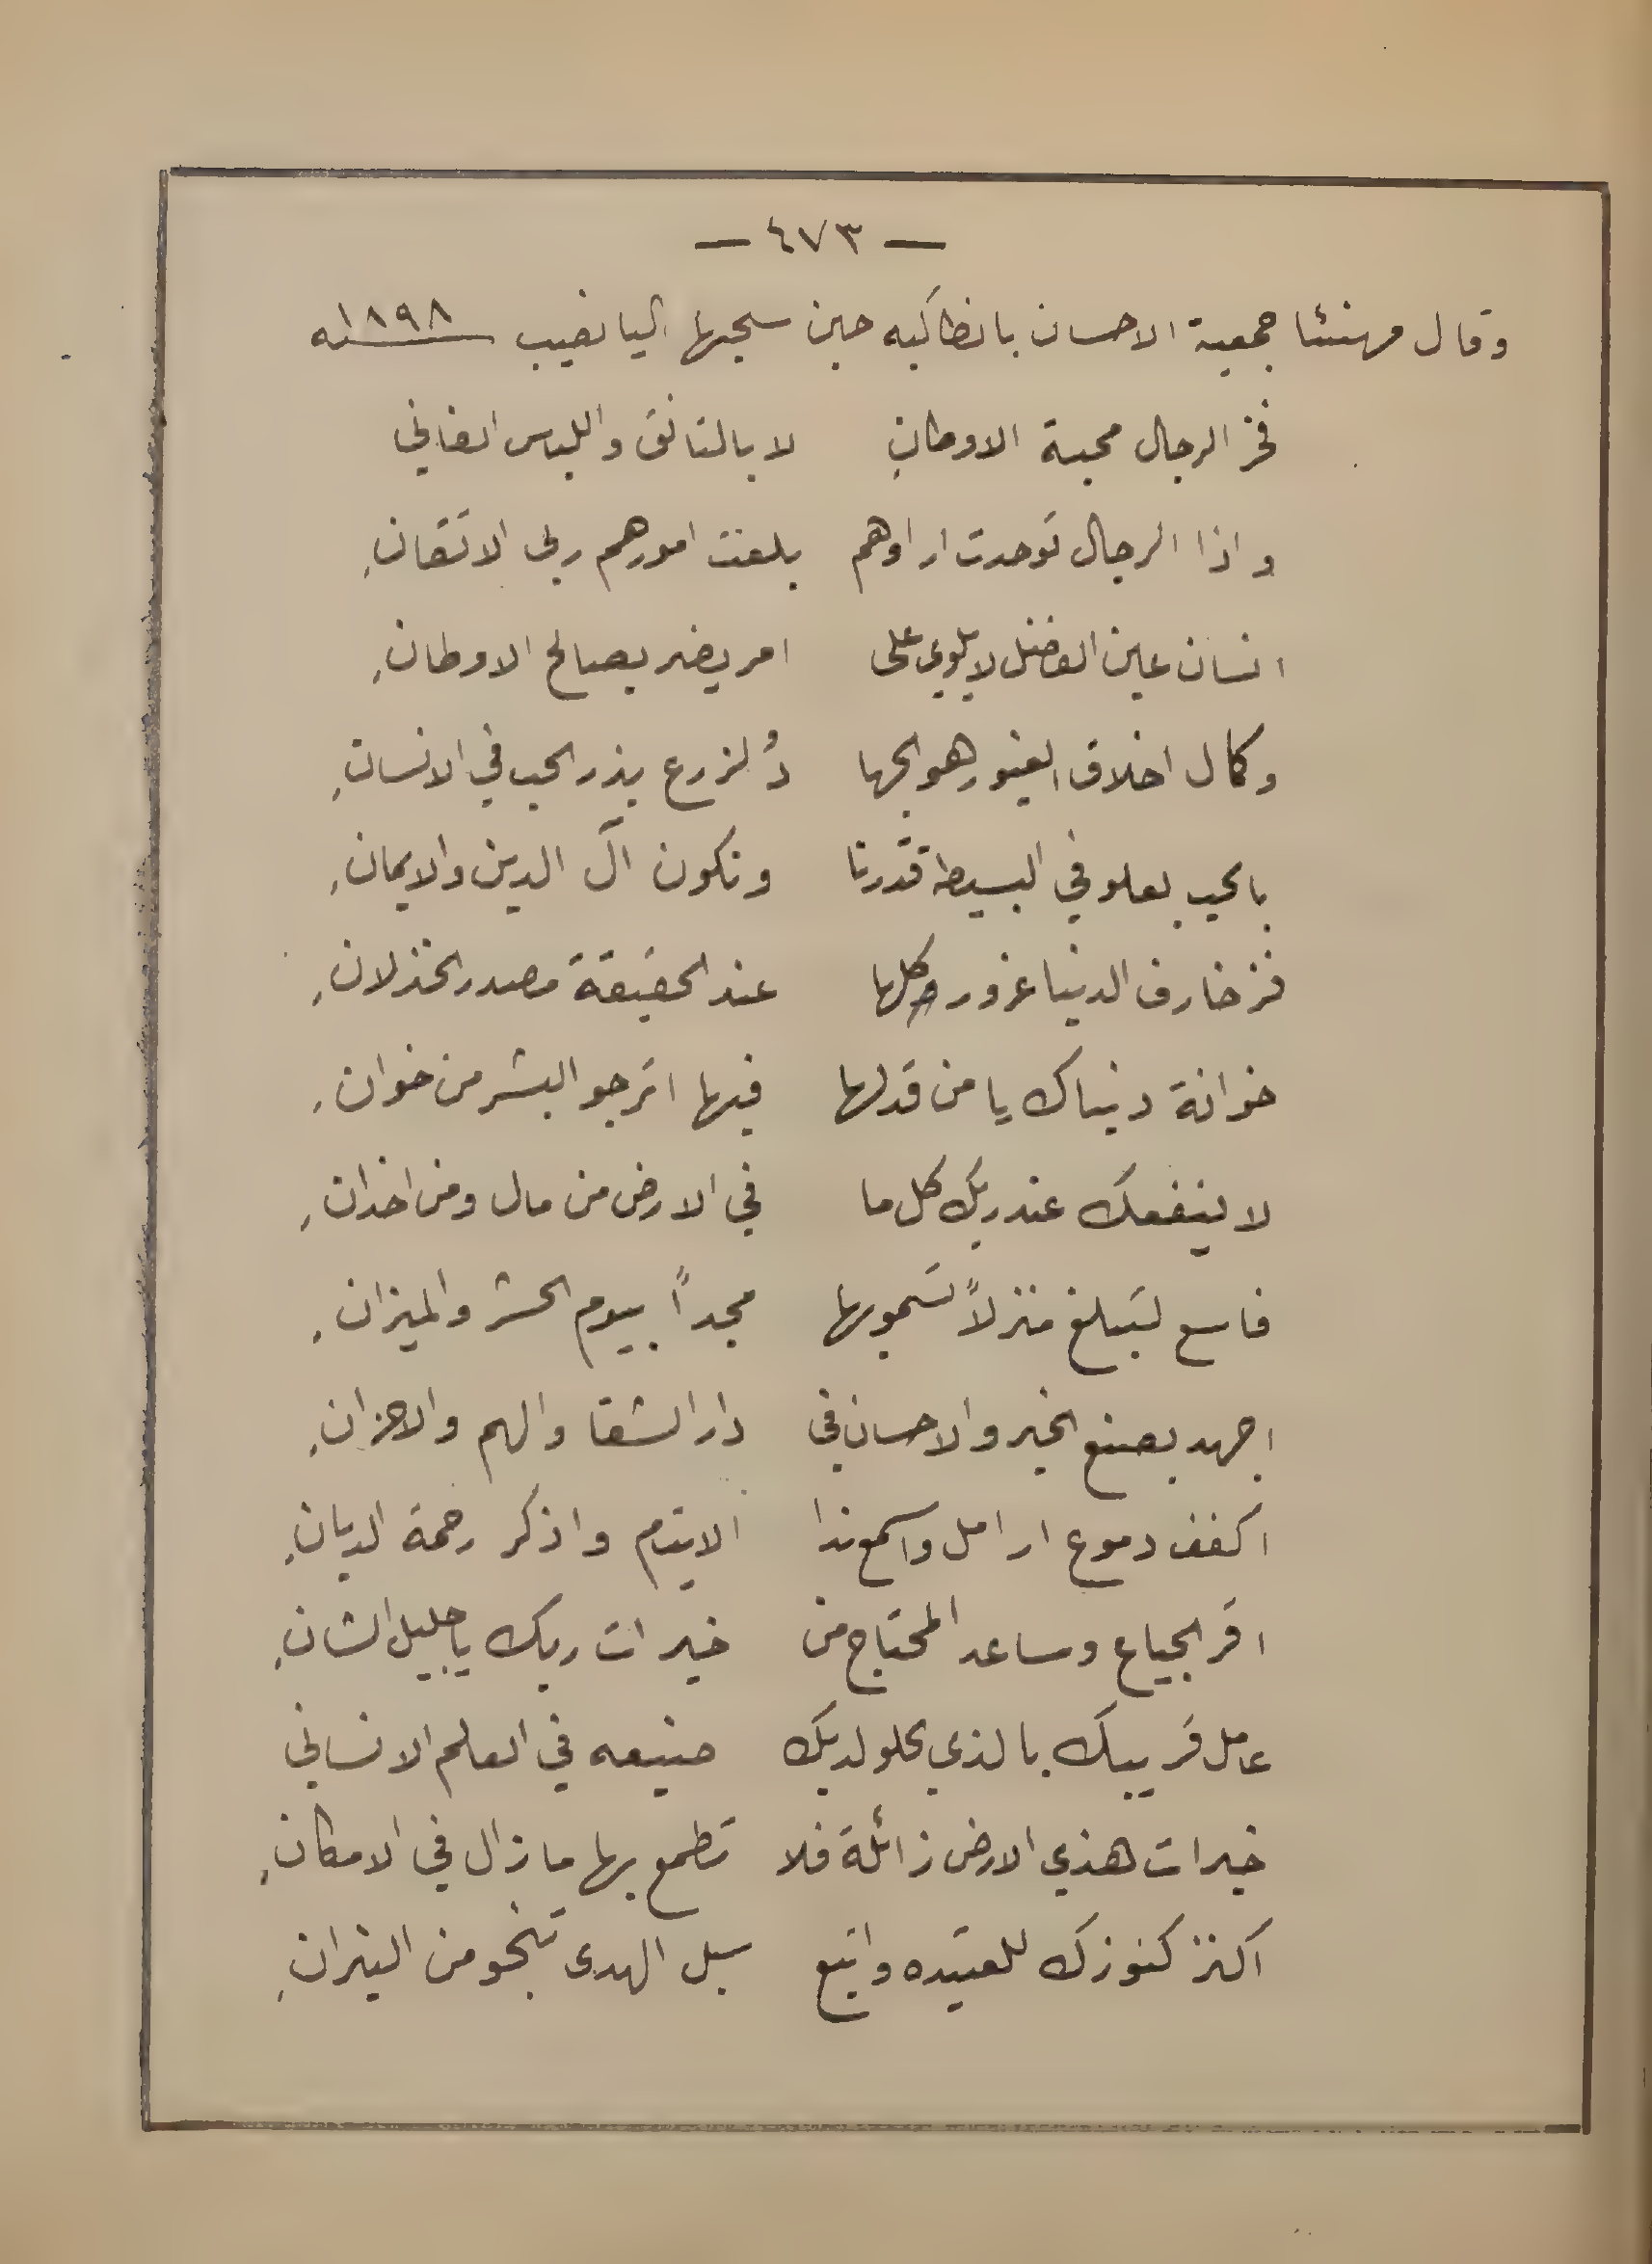 — ٤٧٣ —
وقال مهنئا جمعية الاحسان بانطاكيه حين سحبها اليانصيب سنه ١٨٩٨
فخر الرجال محبة الاوطانِ لا بالتانق واللباس الفاني
واذا الرجال توحدت اراوهم بلغت امورهم ربى الاتقانِ
انسان عين الفضل لا يلوي على امر يضر بصالح الاوطانِ
وكمال اخلاق الغيور هو الجها دُ لزرع بذر الحب في الانسانِ
بالحب يعلو في البسيطه قدرنا ونكون آل الدين والايمانِ
فزخارف الدنيا غرور كلها عند الحقيقة مصدر الخذلانِ
خوانة دنياك يا من قد لها فيها اترجو البشر من خوانِ
لا ينفعك عند ربك كل ما في الارض من مال ومن اخدانِ
فاسع لتبلغ منزلاً تسمو بها مجداً بيوم الحشر والميزانِ
اجهد بصنع الخير والاحسان في دار الشقا والهم والاحزانِ
اكفف دموع ارامل واسمع ندا الايتام واذكر رحمة الديانِ
اقر الجياع وساعد المحتاج من خيرات ربك يا جليل الشانِ
عامل قريبك بالذي يحلو لديك صنيعه في العلم الانساني
خيرات هذي الارض زائلة فلا تطمع بها ما زال في الامكانِ
اكنز كنوزك للعتيده واتبع سبل الهدى تنجو من النيرانِ